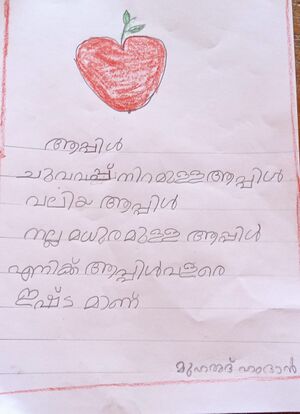 ആപ്പിൾ
ചുവപ്പ് നിറമുള്ള ആപ്പിൾ
വലിയ ആപ്പിൾ
നല്ല മധുരമുള്ള ആപ്പിൾ
എനിക്ക് ആപ്പിൾ വളരെ
ഇഷ്ട മാണ്
മുഹമ്മദ് ഹംദാൻ